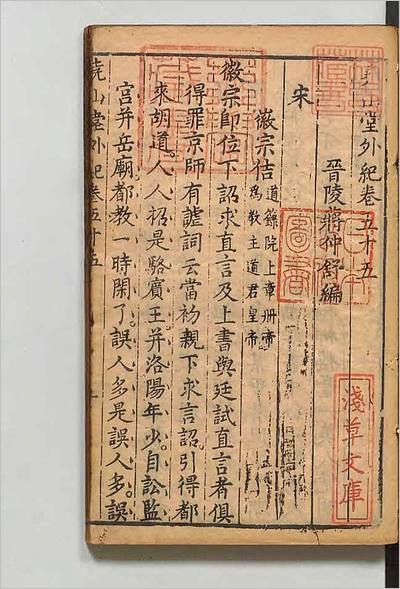 堯山堂外紀卷五十五
晉陵蔣仲舒編
宋
徽宗佶
道錄院上章冊帝
為教主道君皇帝
徽宗即位下詔求直言及上書與廷試直言者俱
得罪京師有謔詞云當初親下求言詔引得都
來胡道人人招是駱賓王并洛陽年少自訟監
宮并岳廟都教一時閑了誤人多是誤人多誤
堯山堂外紀卷五十五
淺草文庫
圖書